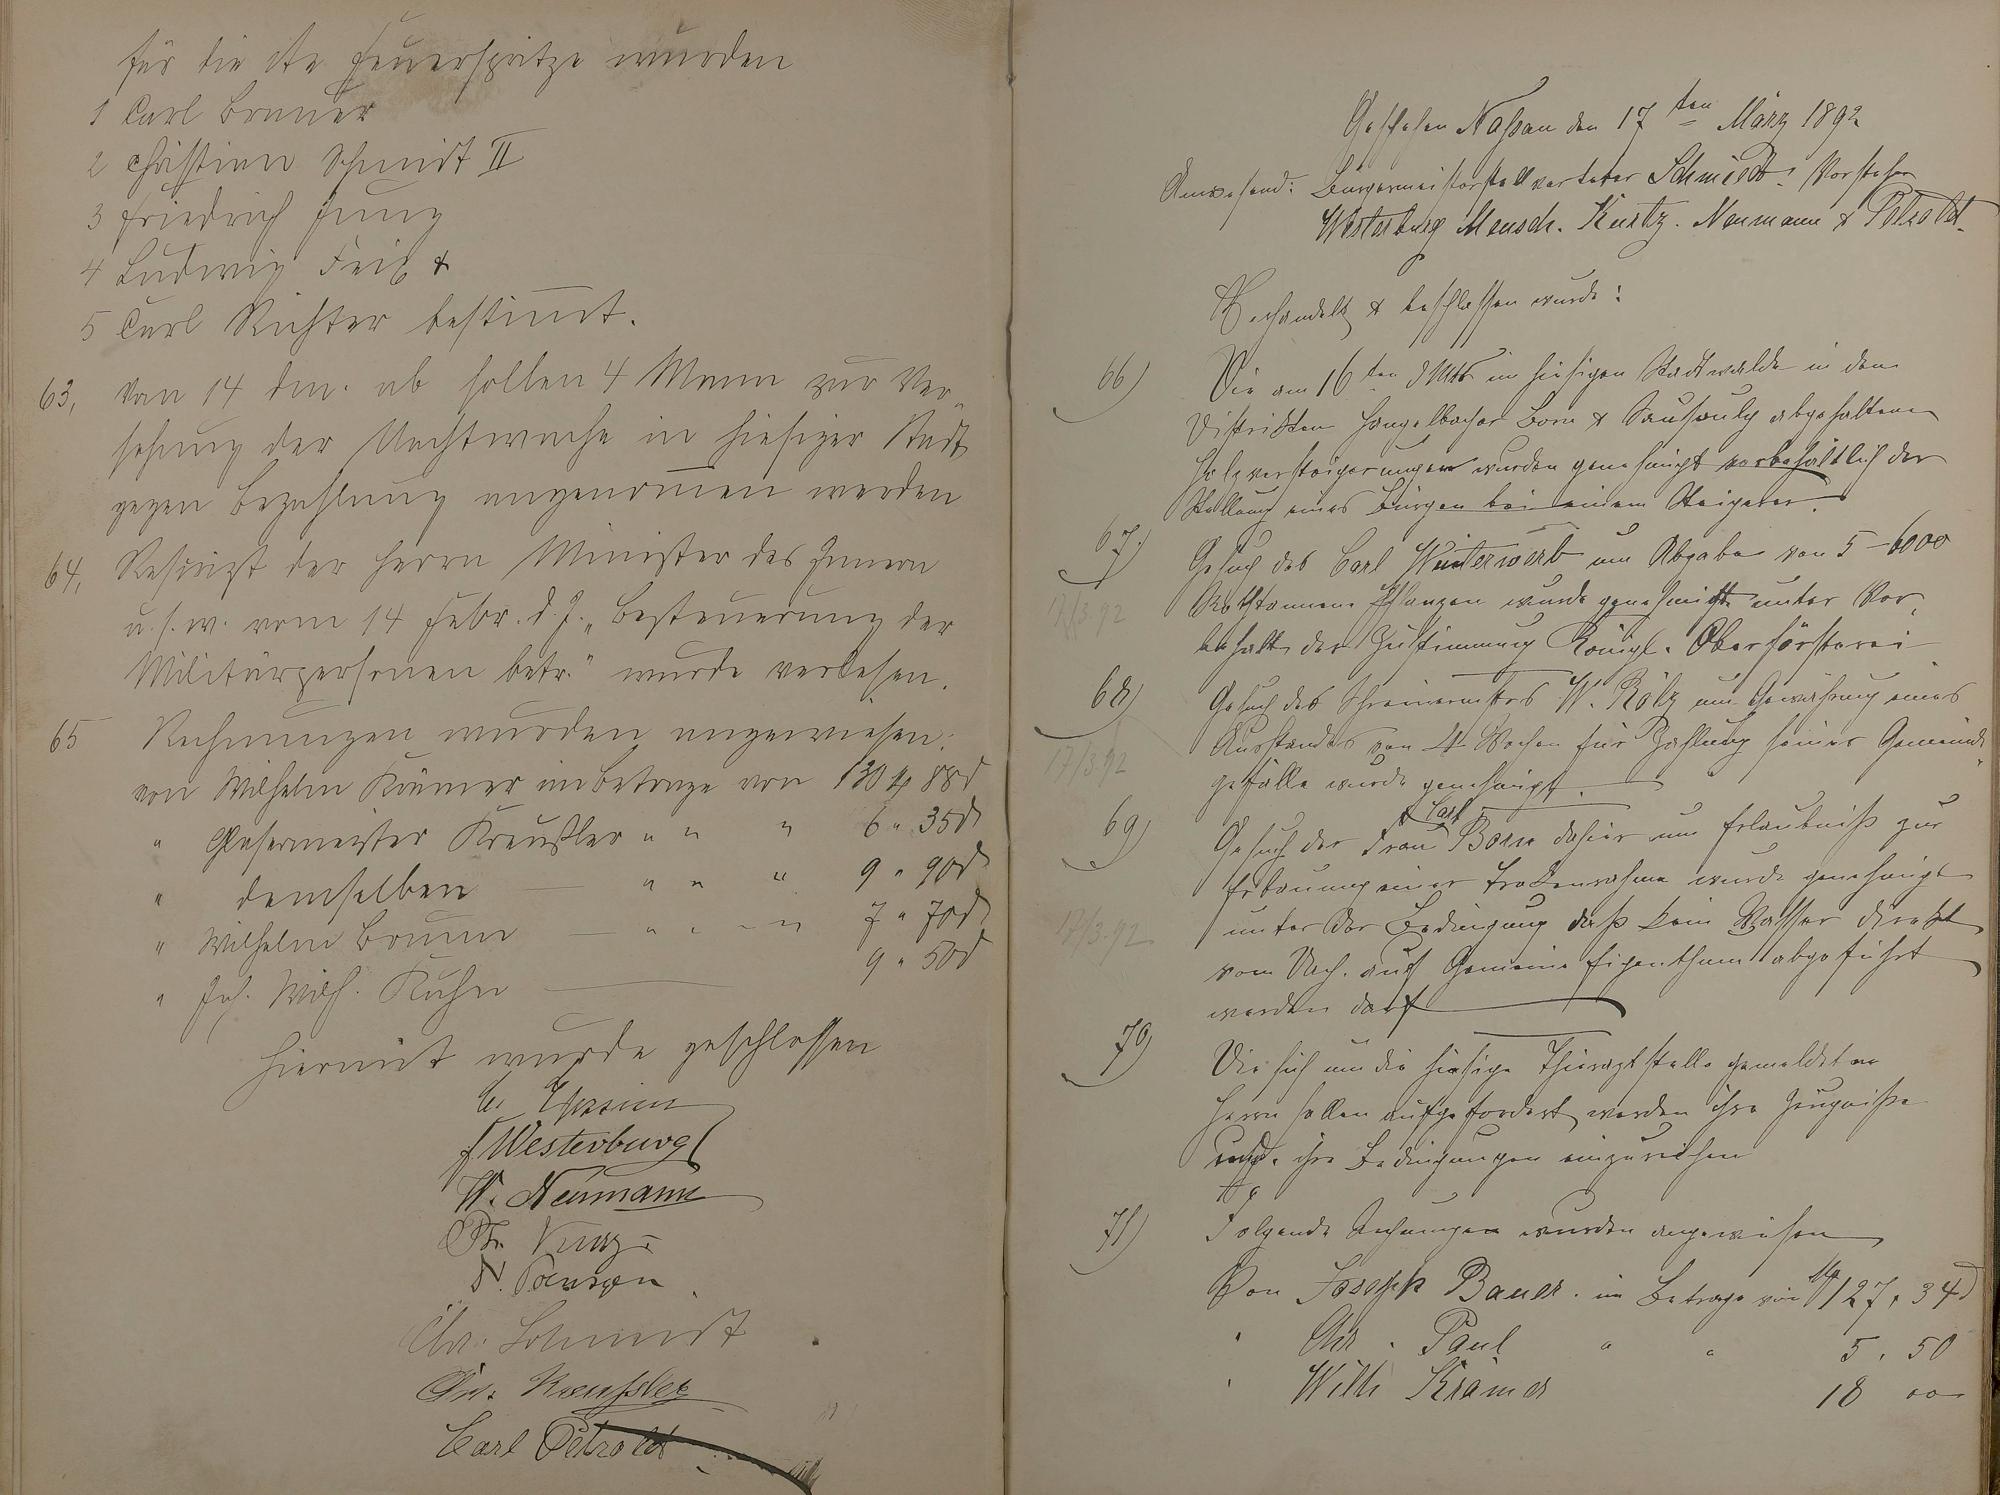 für die 2te Feuerspritze wurden
1 Carl Bruner
2 Christian Schmidt II
3 Friedrich Jung
4 Ludwig Feix &
5 Carl Richter bestimmt.
63, Von 14 dm. ab sollen 4 Mann zur Ver-
sehung der Nachtwache in hiesiger Stadt
gegen Bezahlung angenommen werden
64, Rescript der Herrn Minister des Innern
u. s. w. vom 14 Febr. d. J. „Besteuerung der
Militärpersonen betr." wurde verlesen.
65 Rechnungen wurden angewiesen:
von Wilhelm Krämer im Betrage von 130 M 88 d
" Glasermeister Kreußler " " " 6 " 35 d
" demselben — " " " 9 " 90 d
" Wilhelm Brumm — " " " 7 " 70 d
" Joh. Wilh. Kuhn — 9 " 50 d
Hiermit wurde geschlossen
Westerburg
W. Neumann
Chr. Schmidt
Chr. Kreußler
Carl Petzoldt
Geschehen Naßau den 17ten März 1892
Anwesend: Bürgermeisterstellvertreter Schmidt: Vorsteher
Westerburg Mensch. Kurtz. Neumann & Petzoldt.
Verhandelt & beschlossen wurde:
66) Die am 16ten d Mts im hiesigen Stadtwalde in den
Distrikten Born & abgehaltenen
Holzversteigerungen wurden genehmigt vorbehaltlich der
Stellung eines Bürgen bei einem Steigerer.
67) Gesuch des Carl Winterwerb um Abgabe von 5–6000
Rothtannen Pflanzen wurde genehmigt unter Vor-
behalt der Zustimmung Königl. Oberförsterei
17/3.92
68) Gesuch des Schreinermstrs W. Rölz um Gewährung eines
Ausstandes von 4 Wochen für Zahlung seiner Gemeinde-
gefälle wurde genehmigt.
17/3.92
69) Gesuch der Frau Carl Born dahier um Erlaubniß zur
Erbauung einer wurde genehmigt
unter der Bedingung daß kein Wasser direkt
vom Dach auf Gemeinde Eigenthum abgeführt
werden darf
17/3.92
70) Die sich um die hiesige Thierarztstelle gemeldeten
Herrn sollen aufgefordert werden ihre Zeugniße
und ihre Bedingungen einzureichen
71) Folgende Rechnungen wurden angewiesen
Von Joseph Bauer. im Betrage von M 127, 34 d
" Chr. Paul " " 5, 50
" Wilh Krämer 18 00